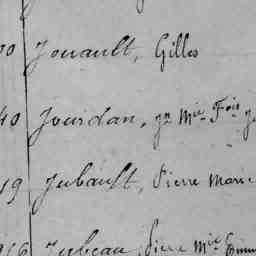 00 Jouault, Gilles
40 Jourdan, Jn Mie Fois
19 Jubault, Pierre Marie
Jubeau, Pierre Mie